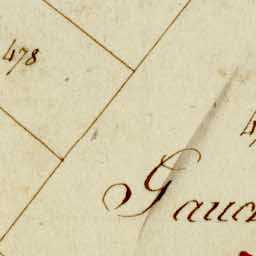 478
Gauch